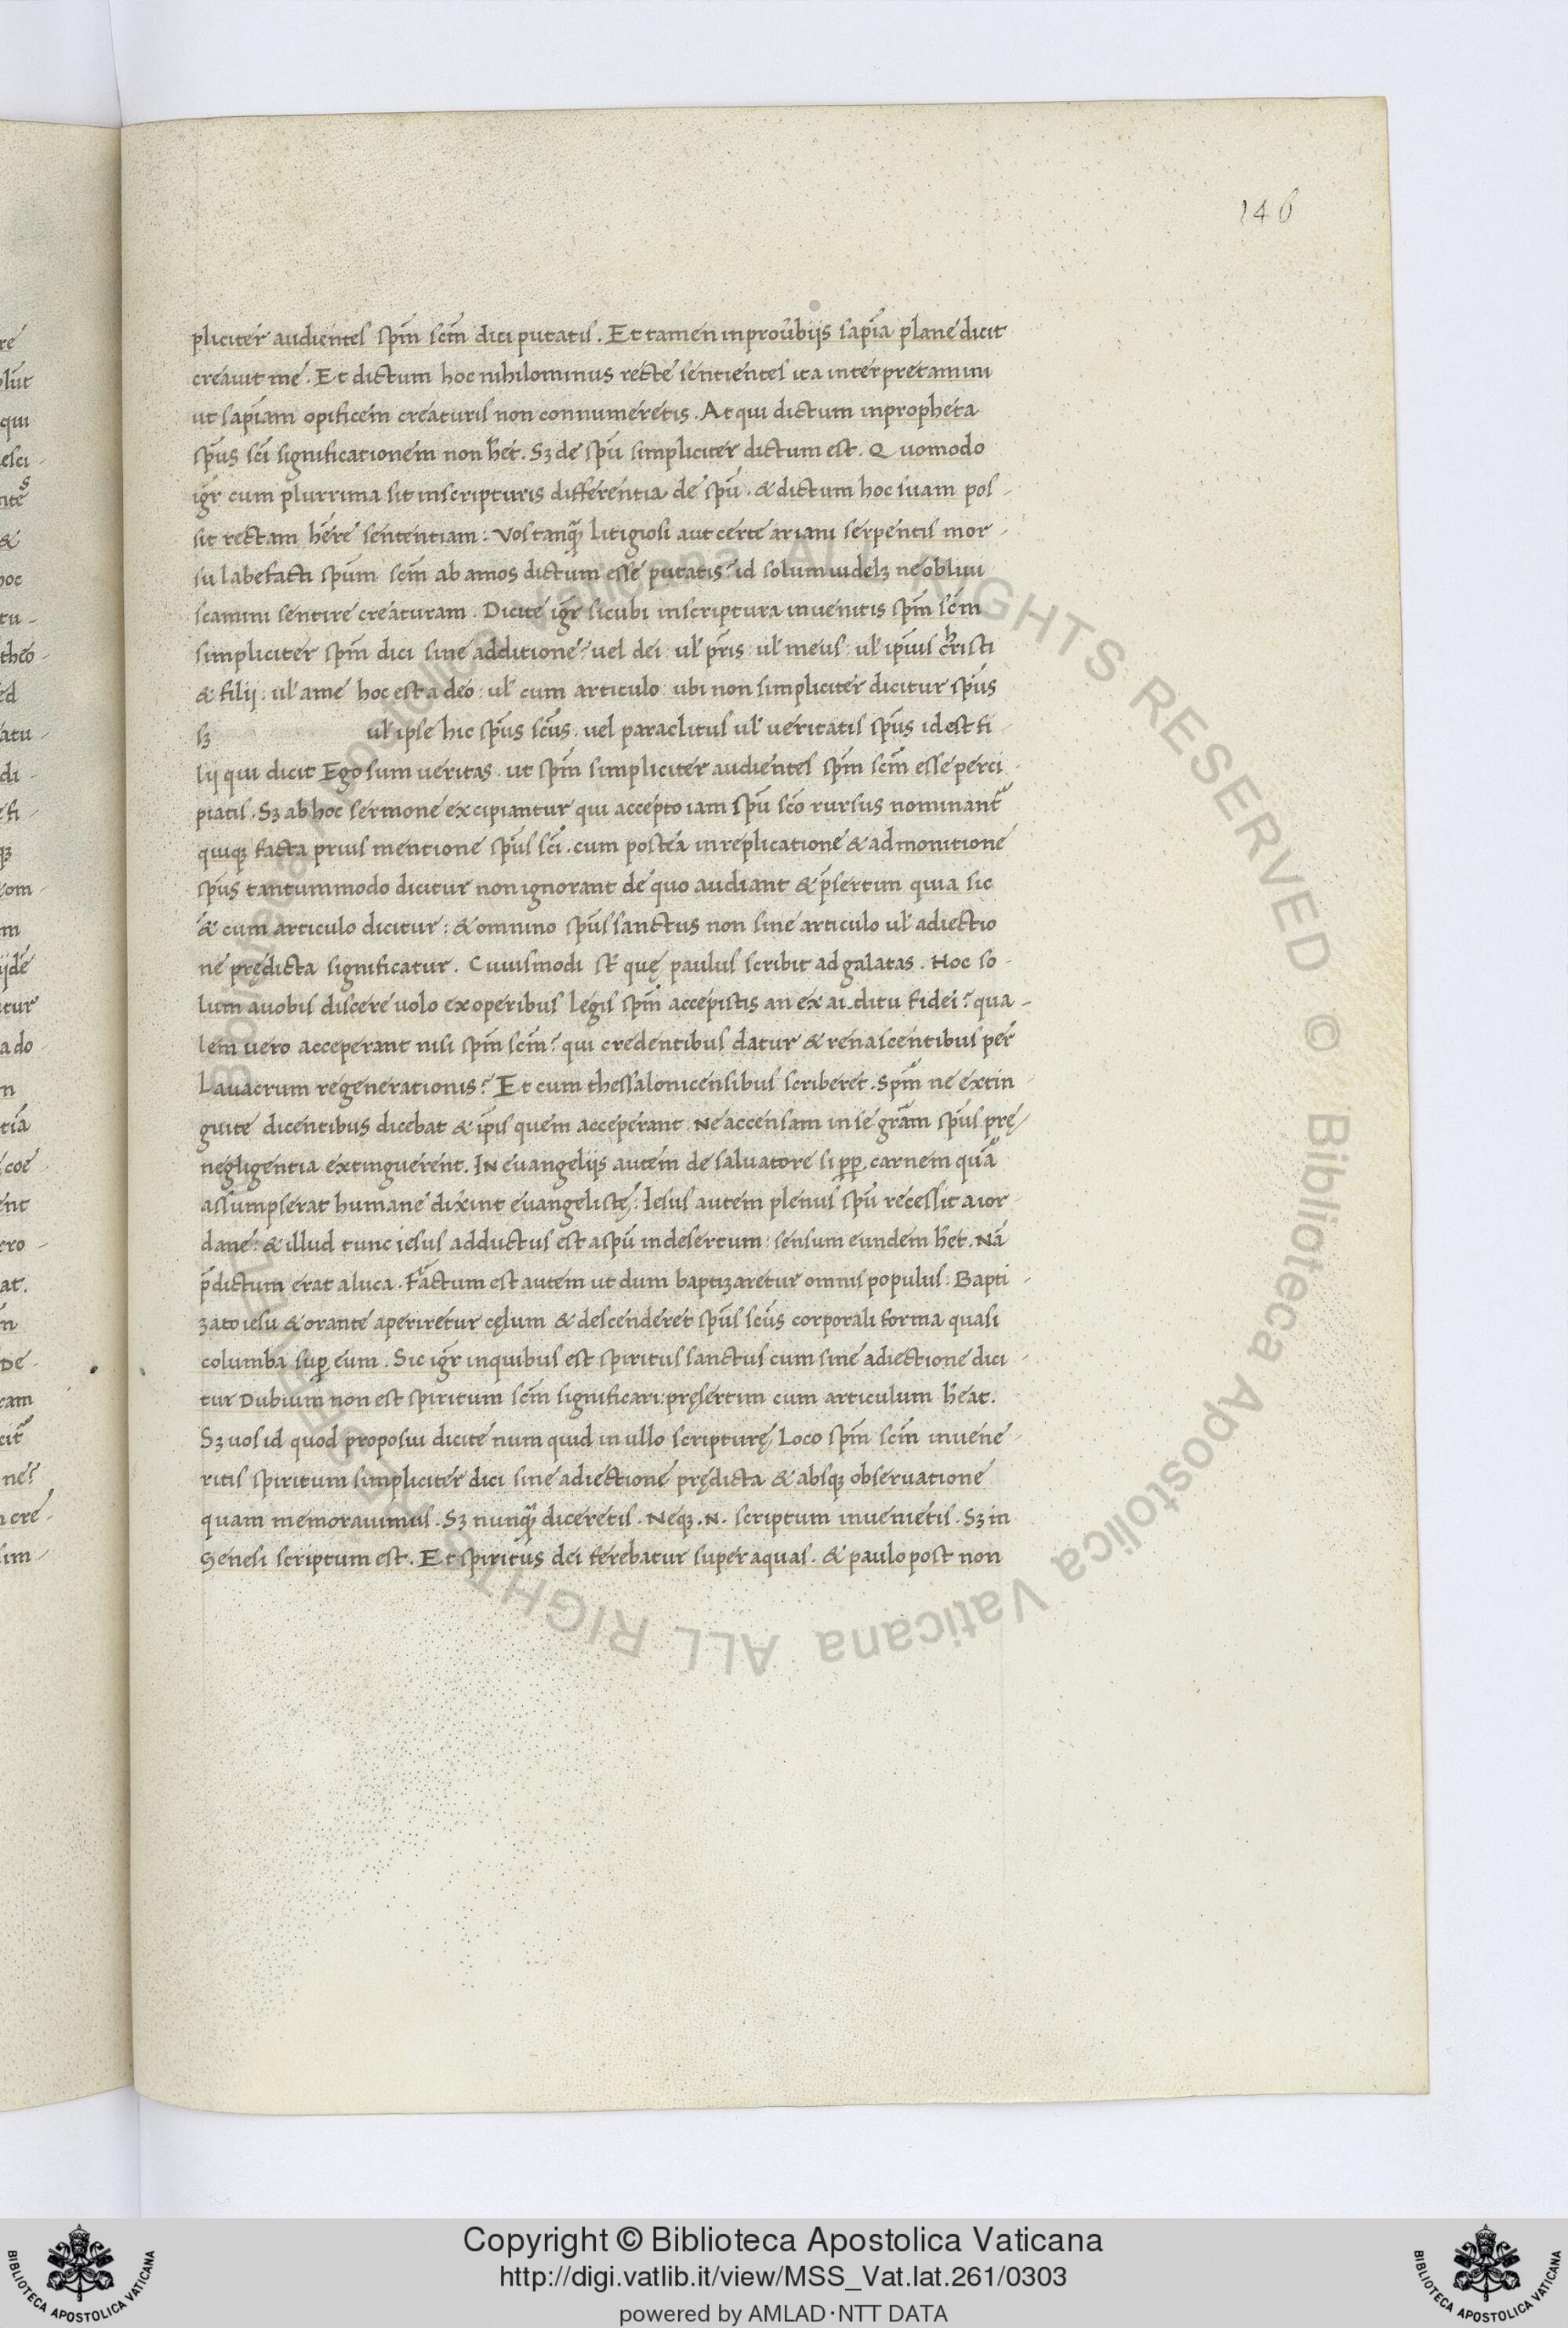 146
pliciter audientes spm̄ scm̄ dici putatis. Et tamen in prouerbijs sapīa plane dicit
creauit me. Et dictum hoc nihilominus recte sentientes ita interpretamini
ut sapīam opificem creaturis non connumeretis. At qui dictum in propheta
sp̄us sc̄i significationem non h̄et. Sꝫ de sp̄u simpliciter dictum est. Quomodo
igr̄ cum plurrima sit in scripturis differentia de sp̄u. & dictum hoc suam pos-
sit rectam h̄ere sententiam: Vos tanꝗ̄ litigiosi aut certe ariani serpentis mor-
su labefacti sp̄um scm̄ ab amos dictum esse putatis? id solum uidelꝫ ne obliui
scamini sentire creaturam. Dicite igr̄ sicubi in scriptura inuenitis spm̄ scm̄
simpliciter spm̄ dici sine additione? uel dei: ul̄ pr̄is: ul̄ meus: ul̄ ip̄ius christi
& filij: ul̄ a me hoc est a deo: ul̄ cum articulo: ubi non simpliciter dicitur sp̄us
sꝫ ul̄ ipse hic sp̄us sc̄us. uel paraclitus ul̄ ueritatis sp̄us id est fi-
lij qui dicit Ego sum ueritas. ut spm̄ simpliciter audientes spm̄ scm̄ esse perci-
piatis. Sꝫ ab hoc sermone excipiantur qui accepto iam sp̄u sc̄o rursus nominant̄
quiqꝫ facta prius mentione sp̄us sc̄i. cum postea in replicatione & admonitione
sp̄us tantummodo dicitur non ignorant de quo audiant & p̄sertim quia sic
& cum articulo dicitur: & omnino sp̄us sanctus non sine articulo ul̄ adiectio
ne prędicta significatur. Cuiusmodi st̄ quę paulus scribit ad galatas. Hoc so-
lum a uobis discere uolo ex operibus legis spm̄ accepistis an ex auditu fidei? qua-
lem uero acceperant nisi spm̄ scm̄? qui credentibus datur & renascentibus per
Lauacrum regenerationis? Et cum thessalonicensibus scriberet. Spm̄ ne extin-
guite dicentibus dicebat & ip̄is quem acceperant. Ne accensam in se gr̄am sp̄us prę
negligentia extinguerent. In euangelijs autem de saluatore si pp̱. carnem quā
assumpserat humane dixint euangelistę: Iesus autem plenus sp̄u recessit a ior-
dane: & illud tunc iesus adductus est a sp̄u in desertum: sensum eundem h̄et. Nā
p̄dictum erat a luca. Factum est autem ut dum baptizaretur omnis populus: Bapti-
zato iesu & orante aperiretur cęlum & descenderet sp̄us sc̄us corporali forma quasi
columba suꝑ eum. Sic igr̄ in quibus est spiritus sanctus cum sine adiectione dici-
tur Dubium non est spiritum scm̄ significari: pręsertim cum articulum h̄eat.
Sꝫ uos id quod proposui dicite num quid in ullo scripturę Loco spm̄ scm̄ inuene-
ritis spiritum simpliciter dici sine adiectione prędicta & absqꝫ obseruatione
quam memorauimus. Sꝫ nunꝗ̄ diceretis. Neqꝫ .N. scriptum inuenietis. Sꝫ in
Genesi scriptum est. Et spiritus dei ferebatur super aquas. & paulo post non
Copyright © Biblioteca Apostolica Vaticana
http://digi.vatlib.it/view/MSS_Vat.lat.261/0303
powered by AMLAD·NTT DATA